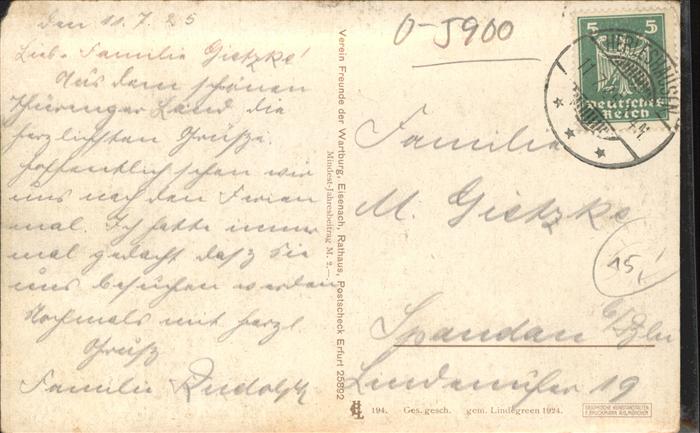 den 11.7.25
Lieb. Familie Gietzke!
Aus dem schönen
Thüringer Land die
herzlichsten Grüße.
Hoffentlich sehen wir
uns nach den Ferien
mal. Ich hatte immer
mal gedacht daß Sie
uns besuchen werden
Nochmals mit herzl.
Gruß
Familie Rudolph
Verein Freunde der Wartburg, Eisenach, Rathaus, Postscheck Erfurt 25892
Mindest-Jahresbeitrag M. 2.—.
O-5900
5 5
Deutsches
Reich
Familie
M. Gietzke
15,
Spandau b/Bln
Lindenufer 19
194. Ges. gesch. gem. Lindegreen 1924.
GRAPHISCHE KUNSTANSTALTEN
F. BRUCKMANN A.G. MÜNCHEN